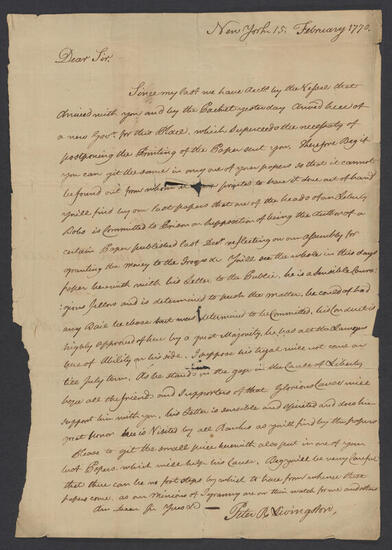 New York 15. February 1770.
Dear Sir.
Since my last we have Accts by the Vessel that
Arrived with you and by the Packet yesterday Arived here of
a new Govr. for this Place, which Superceeds the necessity of
postponing the Printing of the Paper sent you. Therefore Beg if
you can get the same in any one of your papers so that it cannot
be found out from whom it to have it done out of hand
You'll find by our last papers that one of the heads of our Liberty
Boys is Committed to Prison on Supposition of being the Author of a
Certain Paper published last Decr. reflecting on our Assembly for
granting the money to the Troops & You'll see the whole in this days
paper herewith with his Letter to the Public. he is a Sensible Coura
gious fellow and is determined to push the matter, he could of had
any Bail he chose but was determined to be Committed, his Conduct is
highly approved of here by a great Majority, he has all the Lawyers
of Ability on his side. I suppose his tryal will not come on
till July term. As he stands in the gap in the Cause of Liberty
hope all the friends and Supporters of that Glorious Cause will
Support him with you, his Letter is sensible and Spirited and does him
great honor he is Visited by all Ranks as you'll find by the papers
Please to get the small piece herewith also put in one of your
next Papers which will help his Cause. Beg you'll be very Careful
that there can be no foot steps by which to trace from whence these
papers come, as our Minions of Tyranny are on their watch for me and others
Am Dear Sr Yours &c
Peter R. Livingston,